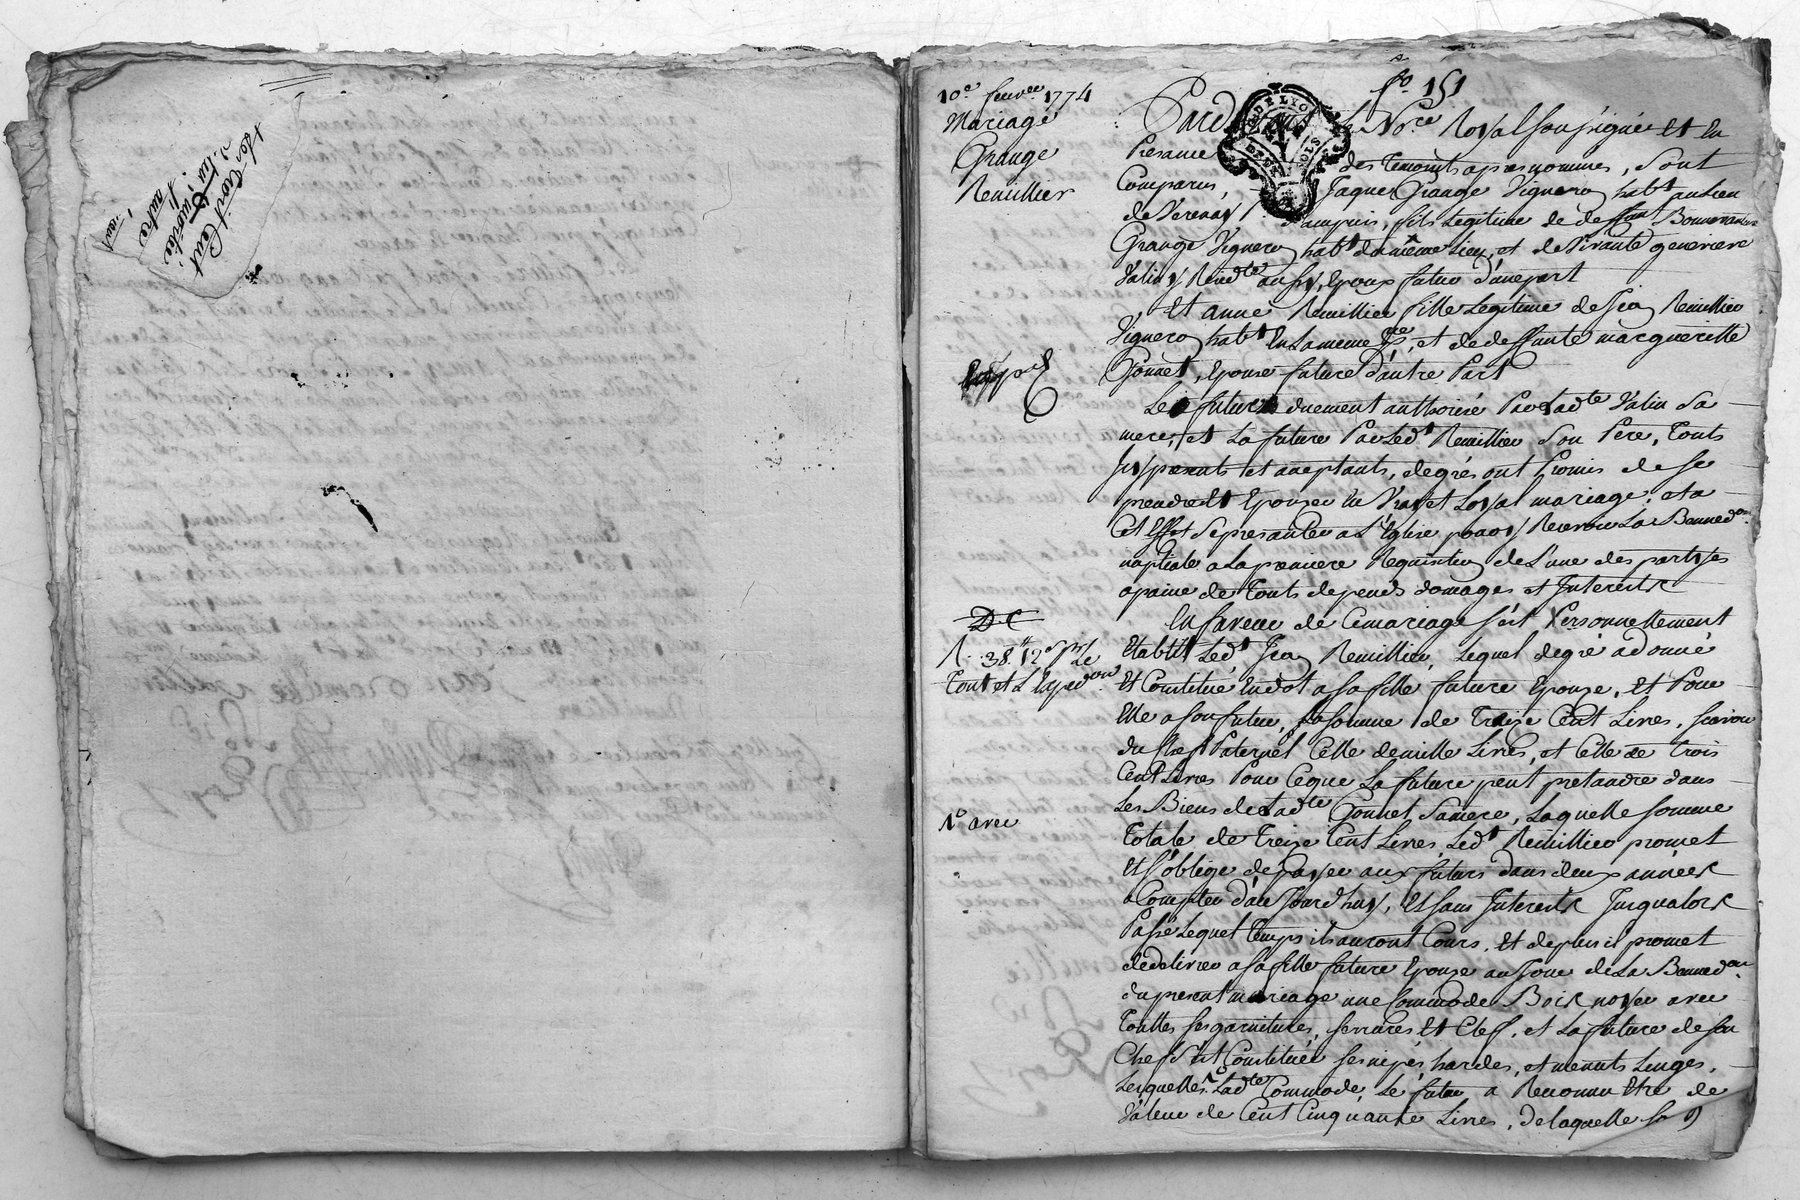 fo. 151
10e fevrer 1774
Mariage
Grange
Remillier
Pardevant le Nore Royal soussigné Et En
Presance des temoints apres nommés, Sont
Comparus, Jaques Grange Vigneron habt au lieu
de Verenay d'ampuis, fils Legitime de deffunt Bonnaventure
Grange Vigneron habt du même lieu, et de Vivante genevieve
Valin Residte aussy, Epoux futur d'une part
Et anne Remillier fille Legitime de Jean Remillier
Vigneron habt En la meme Psse, et de deffunte marguerite
Gonnet, Epouse future d'autre Part
Le futur duement authorisé Par Ladte Valin Sa
mere, et La future Par Ledt Remillier Son Pere, touts
Icy presents et acceptants, de grés ont Promis de se
prendre Et Epouser En Vray et Loyal mariage, et a
Cet Effet se presanter a L'Eglise pour y Recevoir La Benned.on
nuptiale a La premiere Requisition de L'une des partyes
a paine de touts depends domages et Interests
En faveur de Ce mariage s'est Personnellement
Etablit Ledt Jean Remillier, Lequel de gré a donné
Et Constitué En dot a sa fille future Epouse, Et Pour
Elle a son futur, La somme de Treize Cent Livres, scavoir
du Chef Paternel Celle de mille Livres, et Celle de trois
Cent Livres Pour Ce que La future peut pretandre dans
Les Biens de Ladte Gonnet Sa mere, Laquelle somme
totale de treize Cent Livres Ledt Remillier promet
Et s'oblige de payer aux futurs dans deux années
a Compter d'au Jourd'huy, Et sans Interests Jusqualors
Passé Lequel temps ils auront Cours, Et de plus il promet
de delivrer a sa fille future Epouse au Jour de La Benned.on
du present mariage une Commode Bois noyer avec
touttes ses garnitures, serrures Et Clef, et La future de son
Chef s'est Constituée ses nipes, hardes, et menuts Linges,
Lesquelles et Ladte Commode, Le futur a Reconnu Etre de
Valeur de Cent Cinquante Livres, de laquelle so
Expé
D C
R. 38 tt 12 s Pr Le
tout et L'Exped.on
1° avec